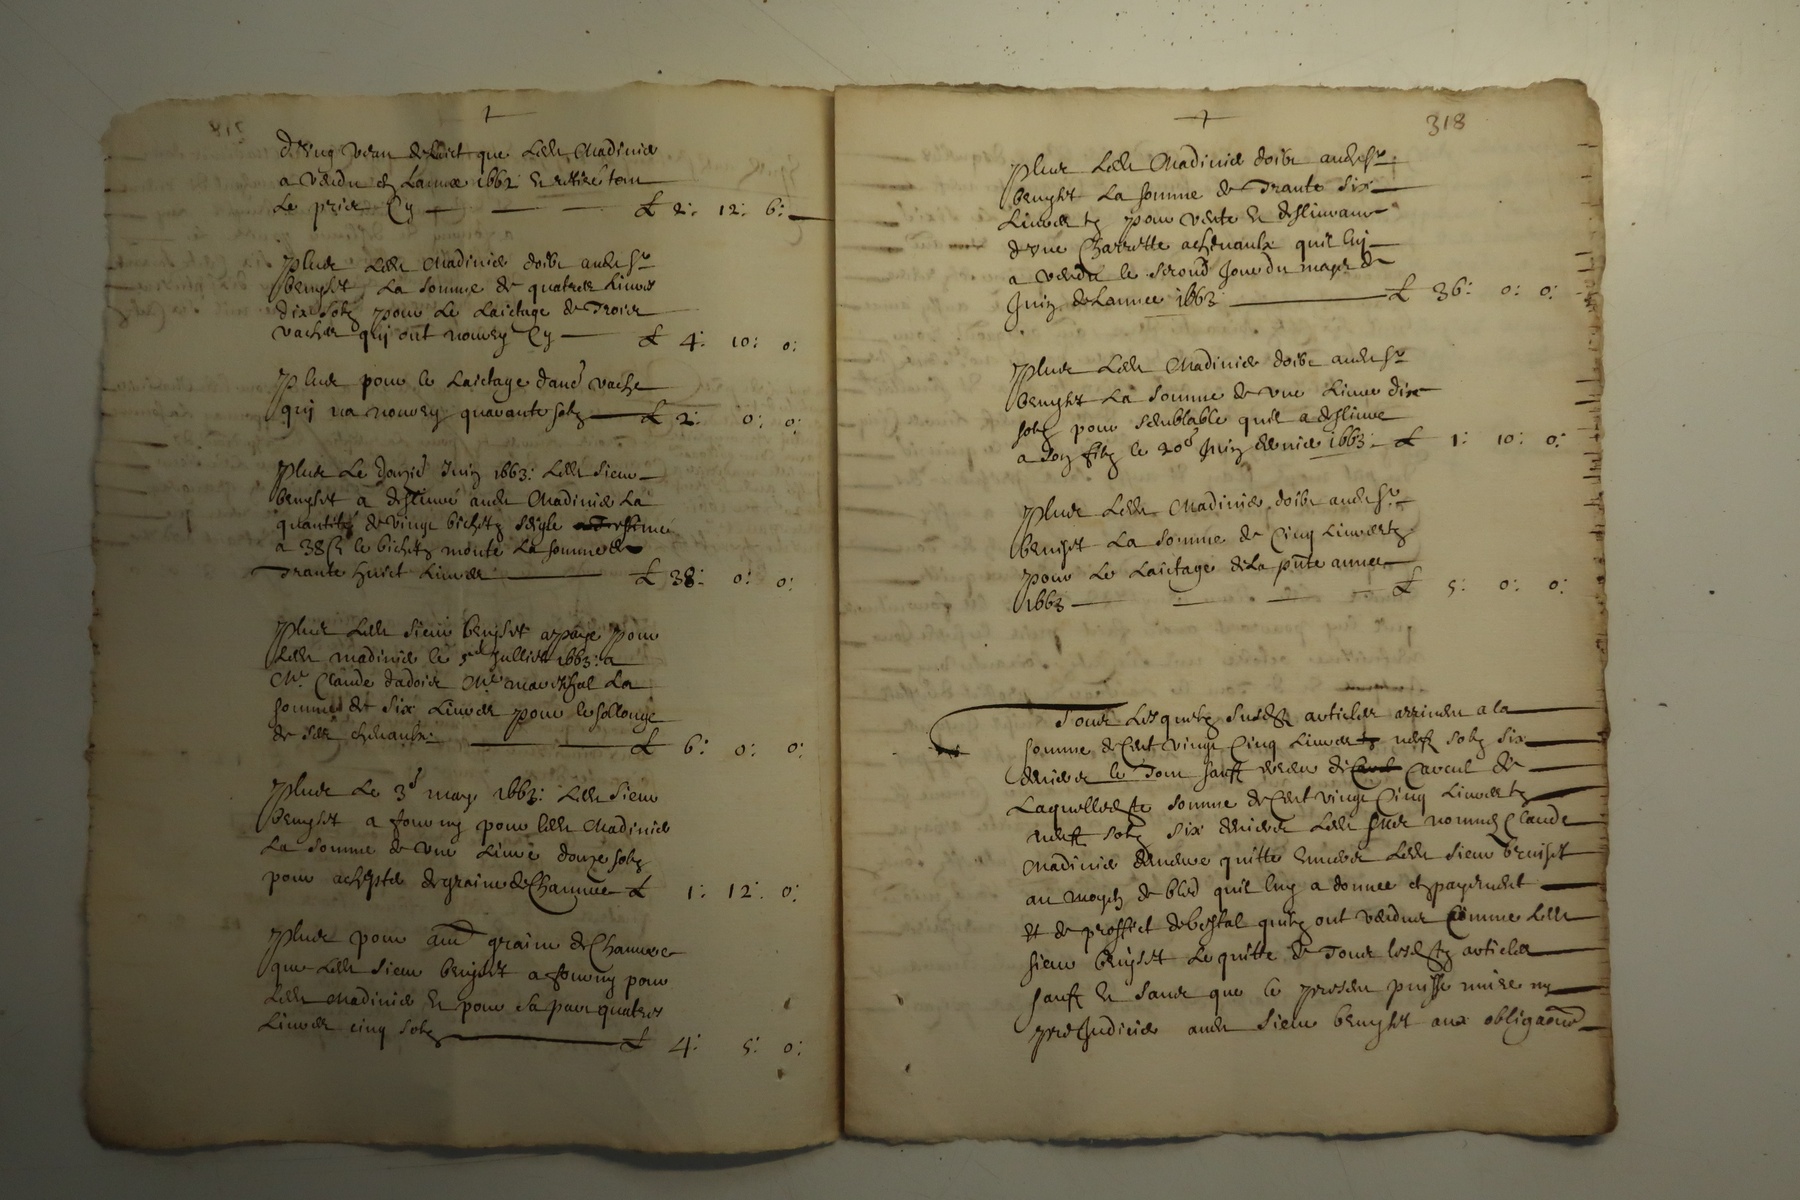 d'ung veau de laict que ledit Madinier
a vendu en lannee 1662 et retire tout
le prix Cy £ 2: 12: 6:
Plus ledit Madinier doibt audit Sr
benoist la somme de quatre livres
dix solz pour le laictage de trois
vaches quj ont nourry Cy £ 4: 10: 0:
Plus pour le laictage d'une vache
quj na nourry quarante solz £ 2: 0: 0:
Plus le Juin 1663: ledit sieur
benoist a deslivré audit Madinier la
quantité de vingt bichetz seigle
a 38 s le bichetz monte la somme de
trante huict livres £ 38: 0: 0:
Plus ledit sieur benoist a paye pour
ledit madinier le Julliet 1663: a
Mre Claude Mre mareschal la
somme de six livres pour
de ses chevaulx £ 6: 0: 0:
Plus le 3e may 1663: ledit sieur
benoist a fourny pour ledit Madinier
la somme de une livre douze solz
pour achepter de graine de Chanvre £ 1: 12: 0:
Plus pour graine de Chanvre
que ledit sieur benoist a fourny pour
ledit Madinier et pour sa part quatre
livres cinq solz £ 4: 5: 0:
318
Plus ledit Madinier doibt audit Sr
benoist la somme de trante six
livres tz pour vente et deslivrance
d'une Charrette a chevaulx quil luy
a vendu le second Jour du moys de
Juin de lannee 1663 £ 36: 0: 0:
Plus ledit Madinier doibt audit Sr
benoist la somme de une livre dix
solz pour semblable quil a deslivre
a son filz le 20e Juin dernier 1663: £ 1: 10: 0:
Plus ledit Madinier doibt audit Sr
benoist la somme de Cinq livres tz
pour le laictage de la pnte annee
1663 £ 5: 0: 0:
Tous lesquelz susdtz articles arrivent a la
somme de Cent vingt Cinq livres tz neuf solz six
deniers le tout sauf erreur de Cavcul de
laquelle dte somme de Cent vingt Cinq livres tz
neuff solz six deniers ledit nommez Claude
Madinier demeure quitte envers ledit sieur benoist
au moyen de bled quil luy a donnee en payement
et de proffict de bestal quilz ont vendus Comme ledit
sieur benoist le quitte de tous lesdtz articles
sauff et sans que le present puisse nuire ny
preJudicier audit sieur benoist aux obligaons